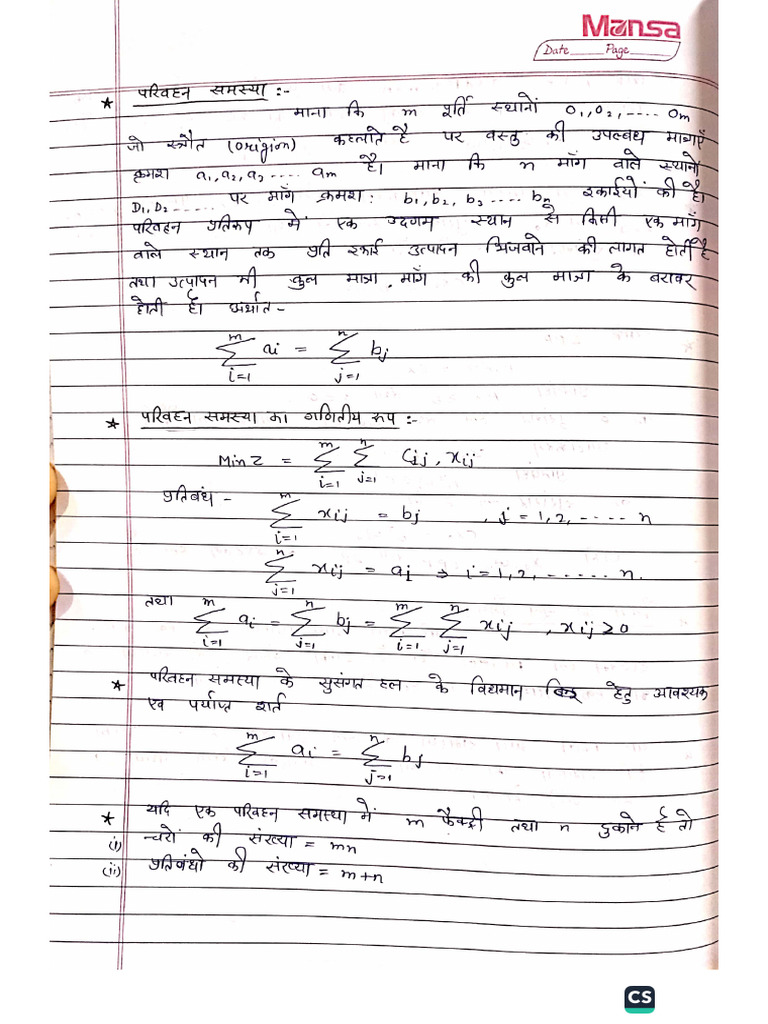 Mansa
Date Page
* परिवहन समस्या :-
माना कि m पूर्ति स्थानों O₁,O₂,---- Om
जो स्त्रौत (origin) कहलाते है पर वस्तु की उपलब्ध मात्राएँ
क्रमश a₁,a₂,a₃---- am है। माना कि n माँग वाले स्थानों
D₁,D₂------ पर माँग क्रमश: b₁,b₂,b₃---- bn इकाईयों की है।
परिवहन प्रतिरूप में एक उदगम स्थान से किसी एक माँग
वाले स्थान तक प्रति इकाई उत्पादन भिजवाने की लागत होती है
तथा उत्पादन की कुल मात्रा, माँग की कुल मात्रा के बराबर
होती है। अर्थात-
∑_{i=1}^{m} ai = ∑_{j=1}^{n} bj
* परिवहन समस्या का गणितीय रूप :-
Min Z = ∑_{i=1}^{m} ∑_{j=1}^{n} Cij, xij
प्रतिबंध - ∑_{i=1}^{m} xij = bj , j = 1,2,----- n
∑_{j=1}^{n} xij = ai → i=1,2,------ n.
तथा ∑_{i=1}^{m} ai = ∑_{j=1}^{n} bj = ∑_{i=1}^{m} ∑_{j=1}^{n} xij , xij ≥ 0
* परिवहन समस्या के सुसंगत हल के विद्यमान हेतु आवश्यक
एव पर्याप्त शर्त
∑_{i=1}^{m} ai = ∑_{j=1}^{n} bj
* यदि एक परिवहन समस्या में m फैक्ट्री तथा n दुकाने है तो
(i) चरों की संख्या = mn
(ii) प्रतिबंधो की संख्या = m+n
CS